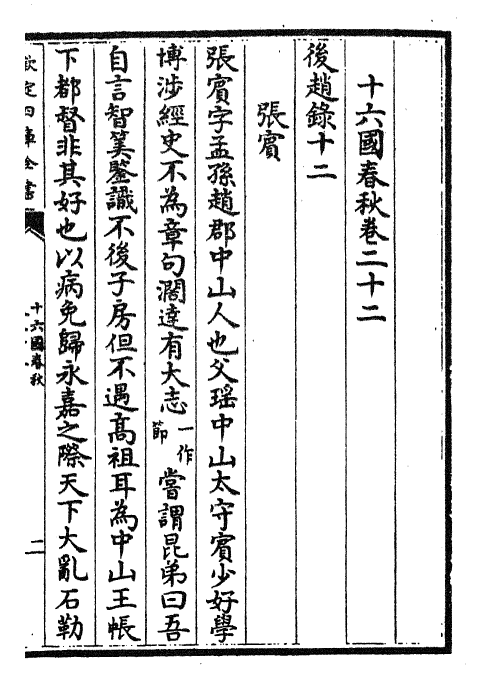 十六國春秋卷二十二
後趙錄十二
張賔
張賔字孟孫趙郡中山人也父瑶中山太守賔少好學
博涉經史不為章句濶達有大志一作節嘗謂昆弟曰吾
自言智筭鑒識不後子房但不遇髙祖耳為中山王帳
下都督非其好也以病免歸永嘉之際天下大亂石勒
欽定四庫全書
十六國春秋